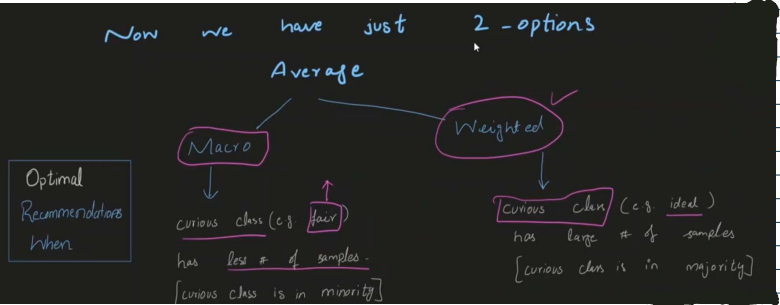 Now we have just 2 - options
Average
Macro
Weighted
Optimal
Recommendations
When
curious class (e.g. fair)
has less # of samples.
[curious class is in minority]
curious class (e.g. ideal)
has large # of samples
[curious class is in majority]